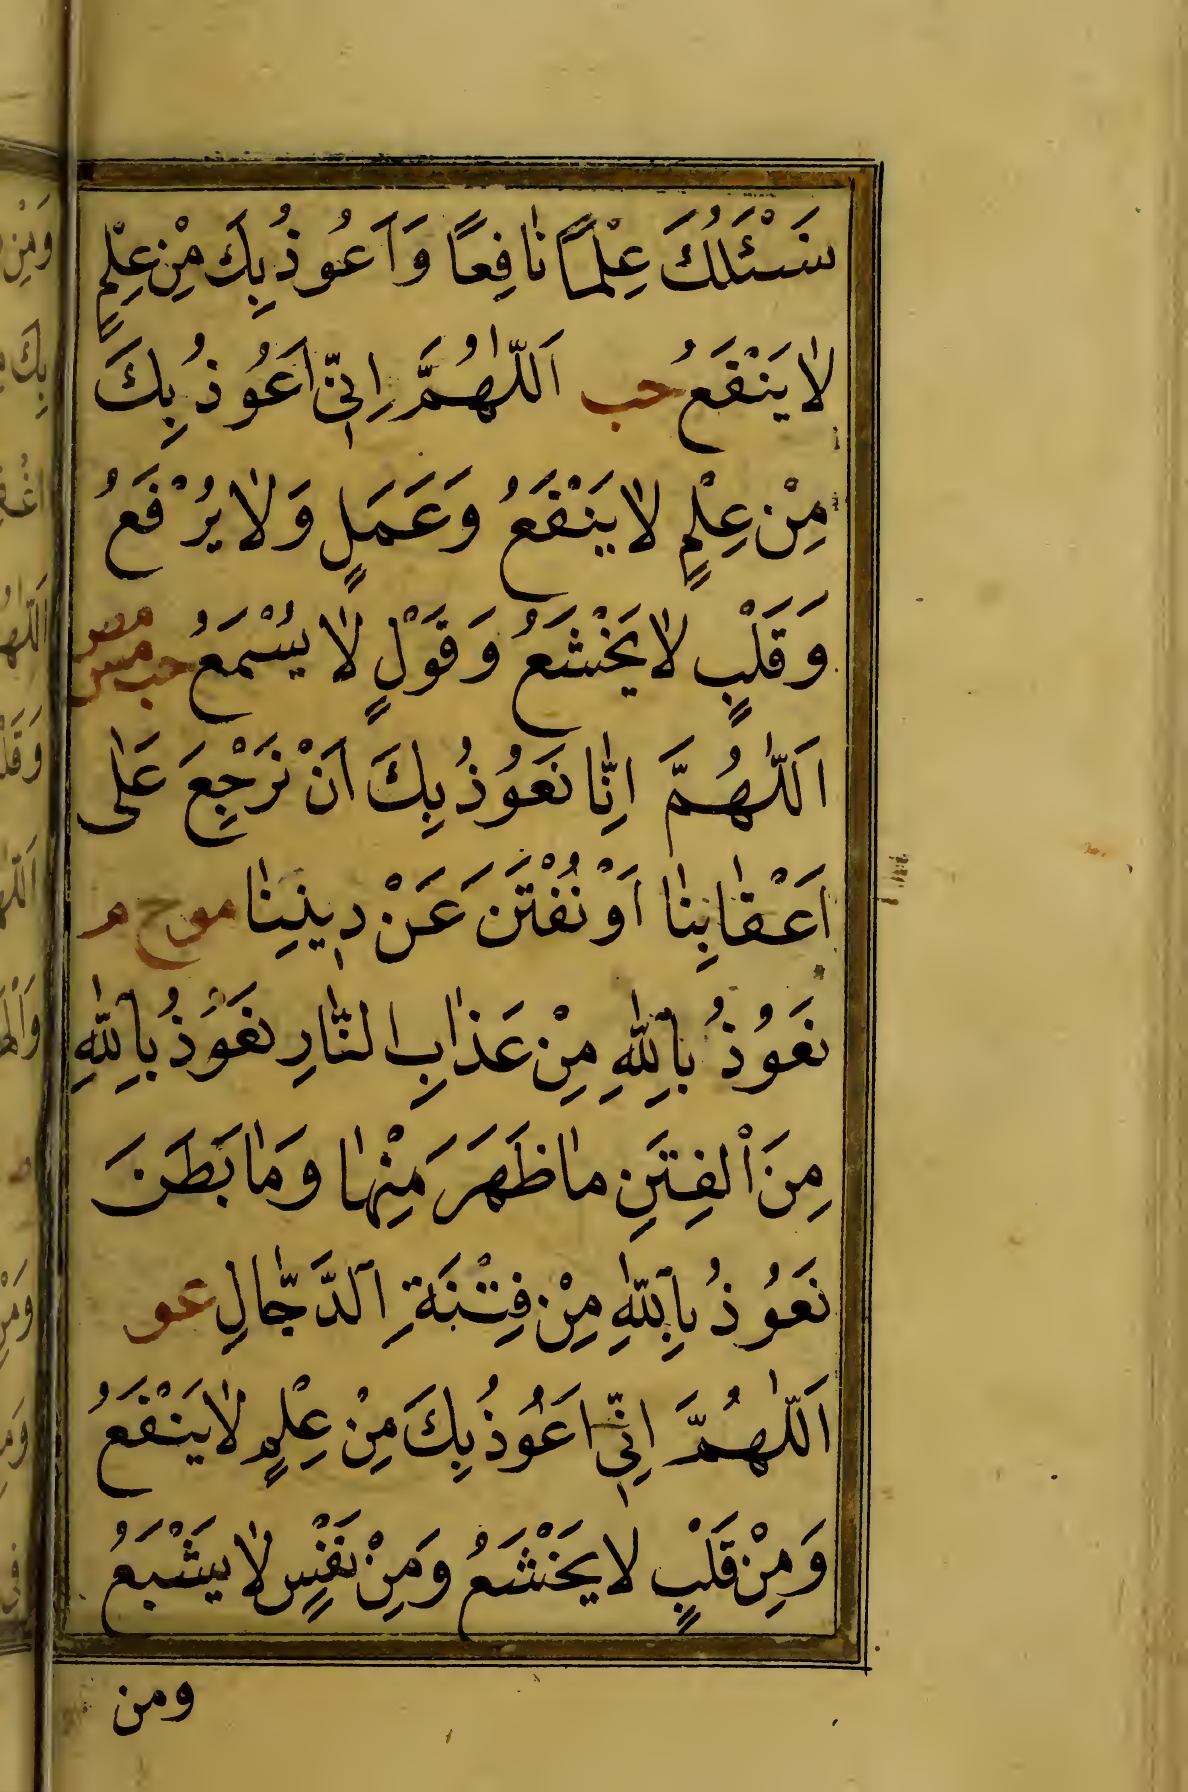 سَئَلُكَ عِلْمًا نٰافِعًا وَاَعُوذُ بِكَ مِنْ عِلْمٍ
لٰا يَنْفَعُ حب اَللّٰهُمَّ اِنّٖي اَعُوذُ بِكَ
مِنْ عِلْمٍ لٰا يَنْفَعُ وَعَمَلٍ وَلٰا يُرْفَعُ
وَقَلْبٍ لٰا يَخْشَعُ وَقَوْلٍ لٰا يُسْمَعُ مص
حب مس
اَللّٰهُمَّ اِنّٰا نَعُوذُ بِكَ اَنْ نَرْجِعَ عَلٰى
اَعْقٰابِنٰا اَوْ نُفْتَنَ عَنْ دٖينِنٰا مو خ م
نَعُوذُ بِاللّٰهِ مِنْ عَذٰابِ النّٰارِ نَعَوُذُ بِاللّٰهِ
مِنَ الْفِتَنِ مٰا ظَهَرَ مِنْهٰا وَمٰا بَطَنَ
نَعُوذُ بِاللّٰهِ مِنْ فِتْنَةِ الدَّجّٰالِ عو
اَللّٰهُمَّ اِنّٖي اَعُوذُ بِكَ مِنْ عِلْمٍ لٰا يَنْفَعُ
وَمِنْ قَلْبٍ لٰا يَخْشَعُ وَمِنْ نَفْسٍ لٰا يَشْبَعُ
ومن